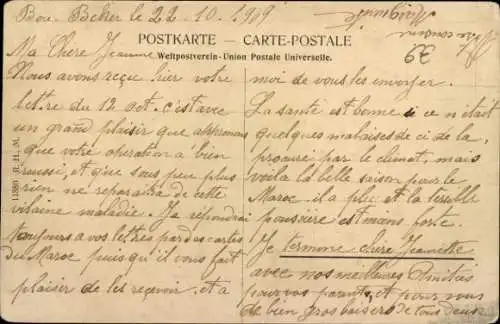 Bou-Beker le 22-10-1909
POSTKARTE - CARTE-POSTALE
Weltpostverein-Union Postale Universelle.
Ma Chere Jeanne
Nous avons reçu hier votre
lettre du 12 oct. c'est avec
un grand plaisir que apprenons
que votre opération a bien
réussi, et que sous peu plus
rien ne reparaitra de cette
vilaine maladie. Je repondrai
toujours a vos lettres par des cartes
du Maroc puisqu'il vous fait
plaisir de les reçevoir. et a
moi de vous les envoyer.
La santé est bonne si ce n'était
quelques malaises de ci de la,
procuré par le climat, mais
voila la belle saison pour le
Maroc. il a plu et la terrible
poussière est moins forte.
Je termine chère Jeannette
avec nos meilleures Amitiés
pour vos parents, et pour vous
de bien gros baisers de tous deux
62
11880 R. H. M.